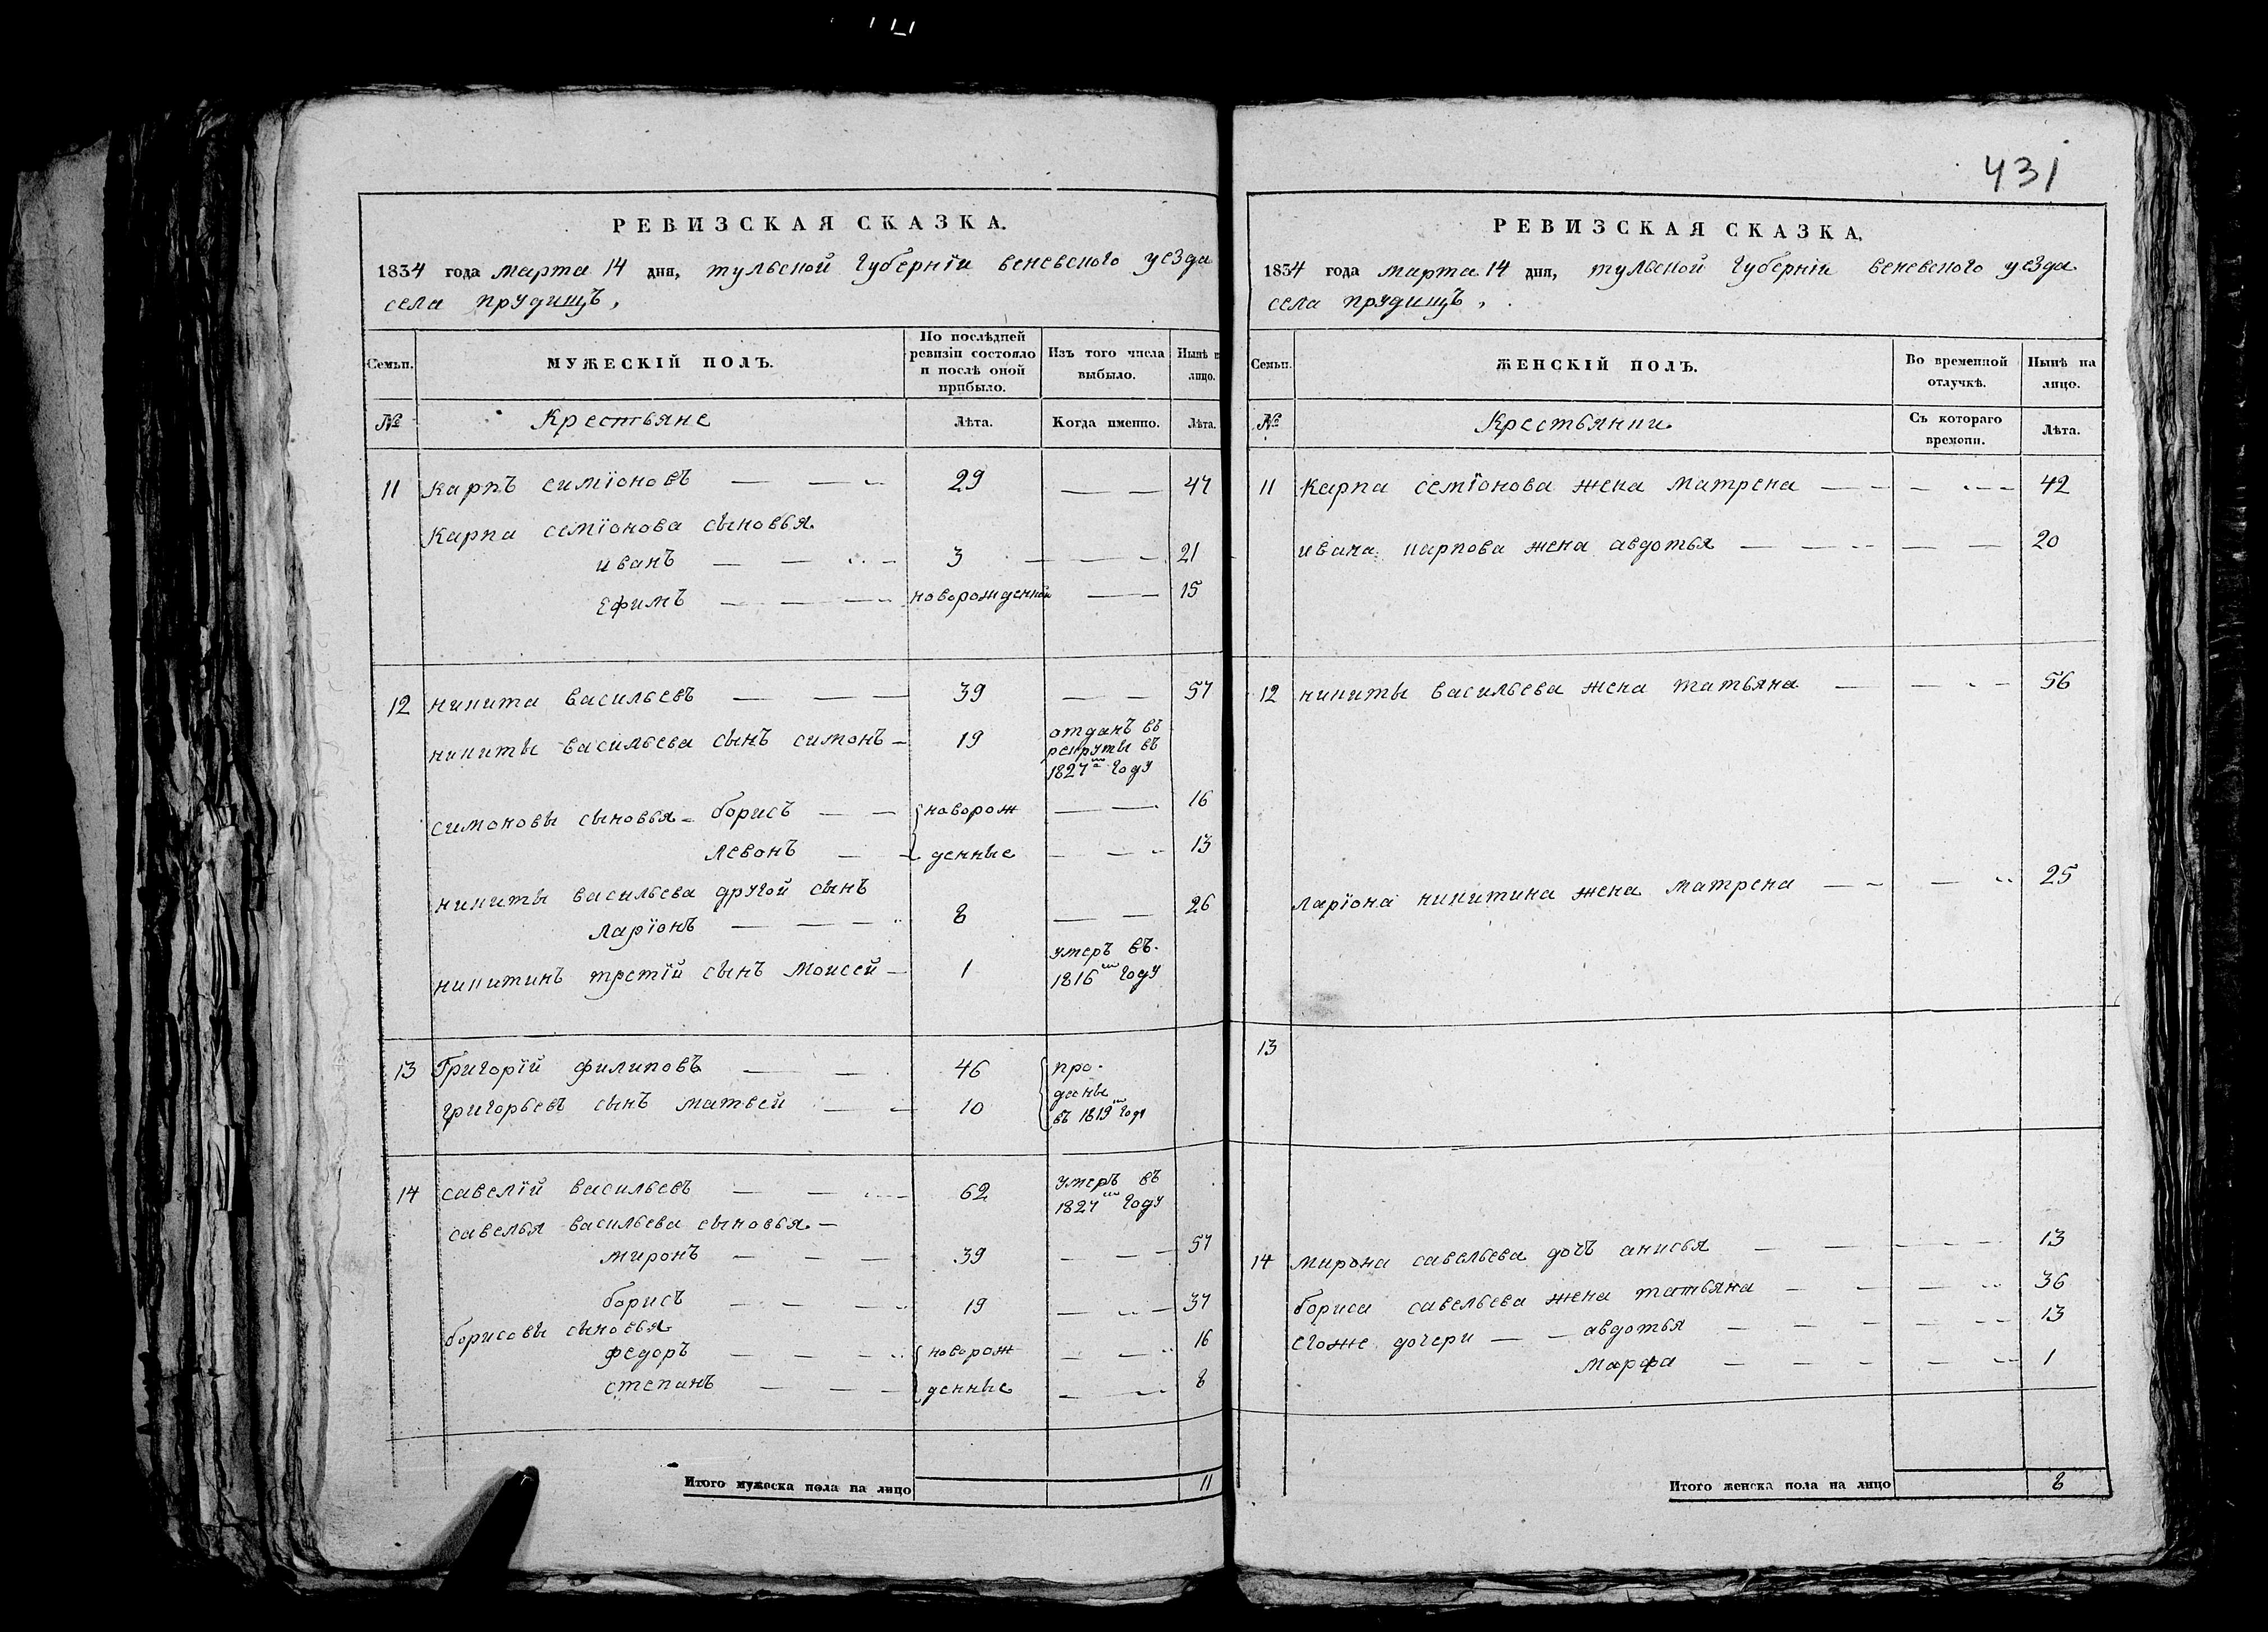 431
РЕВИЗСКАЯ СКАЗКА.
1834 года марта 14 дня, тульской Губерніи веневского уезда
села прудищъ,
Семьи. МУЖЕСКІЙ ПОЛЪ. По послѣдней ревизіи состояло и послѣ оной прибыло. Изъ того числа выбыло. Нынѣ н лицо.
№ Крестьяне Лѣта. Когда именно. Лѣта.
11 Карпъ симіоновъ — — 29 — — 47
Карпа семіонова сыновья
иванъ — — 3 — — 21
Ефимъ — — — новорожденной — — 15
12 никита васильевъ — — — 39 — — 57
никиты васильева сынъ симонъ — 19 отданъ въ
рекруты въ
1827мъ году
симоновы сыновья — борисъ — — новорож — — 16
левонъ — — денные — — 13
никиты васильева другой сынъ
ларіонъ — — — 8 — — 26
никитинъ третій сынъ Моисей — 1 умеръ въ
1816м году
13 Григорій филиповъ — — 46 про-
григорьевъ сынъ матвей — — 10 даны
въ 1819м году
14 савелій васильевъ — — — 62 умеръ въ
1827м году
савелья васильева сыновья —
миронъ — — — 39 — — — 57
борисъ — — — 19 — — — 37
борисовы сыновья
федоръ — — — новорож — — 16
степанъ — — — денные — — 8
Итого мужеска пола на лицо 11
РЕВИЗСКАЯ СКАЗКА.
1834 года марта 14 дня, тульской Губерніи веневского уезда
села прудищъ,
Семьи. ЖЕНСКІЙ ПОЛЪ. Во временной отлучкѣ. Нынѣ на лицо.
№ Крестьянки Съ котораго времени. Лѣта.
11 Карпа семіонова жена Матрена — — — — 42
ивана карпова жена авдотья — — — — 20
12 никиты васильева жена татьяна — — — 56
Ларіона никитина жена матрена — — — 25
13
14 Мирона савельева дочь анисья — — — — 13
бориса савельева жена татьяна — — — 36
егоже дочери — — авдотья — — — — 13
Марфа — — — — 1
Итого женска пола на лицо 8